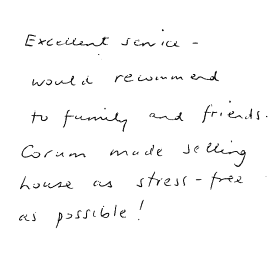 Excellent service -
would recommend
to family and friends.
Corum made selling
house as stress-free
as possible!